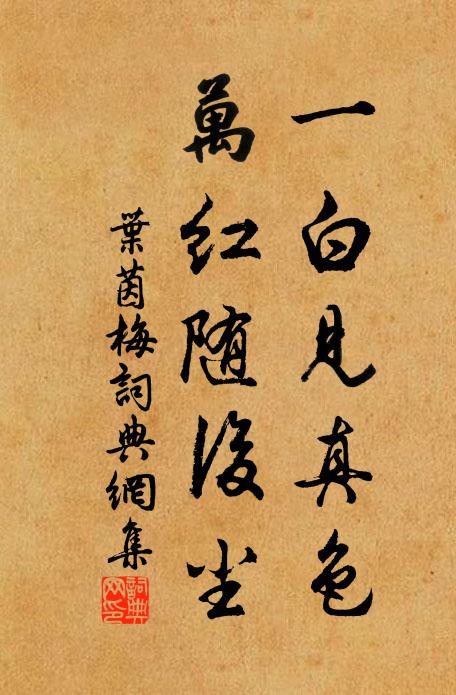 一白見真色
萬紅随後尘
葉茵梅詞典網集
詞典网印